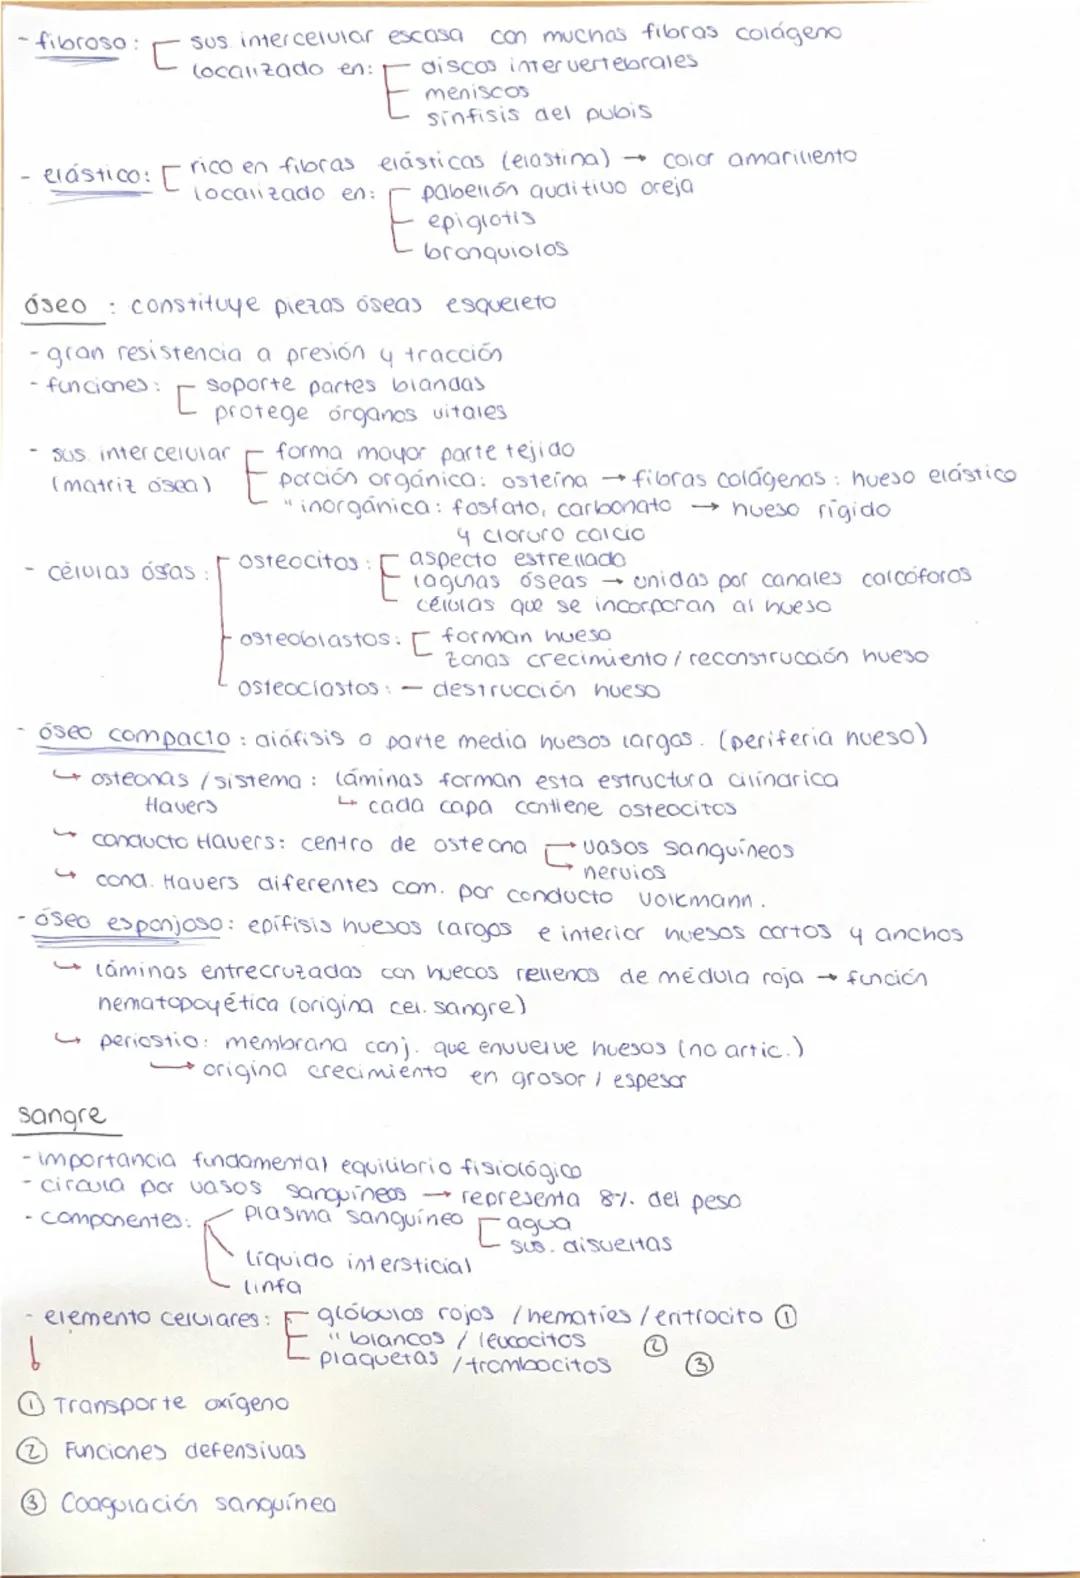 - fibroso: sus. intercelular escasa con muchas fibras colágeno
localizado en: discos intervertebrales
meniscos
sínfisis del pubis
- elástico: rico en fibras elásticas (elastina) → color amarillento
localizado en: pabellón auditivo oreja
epiglotis
bronquiolos
óseo : constituye piezas óseas esqueleto
- gran resistencia a presión y tracción
- funciones: soporte partes blandas
protege órganos vitales
- sus. intercelular forma mayor parte tejido
(matriz ósea) porción orgánica: osteína → fibras colágenas: hueso elástico
" inorgánica: fosfato, carbonato → hueso rígido
y cloruro calcio
- células ósas: osteocitos: aspecto estrellado
lagunas óseas → unidas por canales calcóforos
células que se incorporan al hueso
osteoblastos: forman hueso
zonas crecimiento / reconstrucción hueso
osteoclastos: – destrucción hueso
- óseo compacto: diáfisis o parte media huesos largos. (periferia hueso)
↳ osteonas / sistema : láminas forman esta estructura cilíndrica
Havers ↳ cada capa contiene osteocitos
↳ conducto Havers: centro de osteona → vasos sanguíneos
→ nervios
↳ cond. Havers diferentes com. por conducto Volkmann.
- óseo esponjoso: epífisis huesos largos e interior huesos cortos y anchos
↳ láminas entrecruzadas con huecos rellenos de médula roja → función
hematopoyética (origina cel. sangre)
↳ periostio: membrana conj. que envuelve huesos (no artic.)
→ origina crecimiento en grosor / espesor
sangre
- importancia fundamental equilibrio fisiológico
- circula por vasos sanguíneos → representa 8%. del peso
- componentes: plasma sanguíneo agua
sus. disueltas
líquido intersticial
linfa
- elemento celulares: glóbulos rojos / hematíes / eritrocito ①
" blancos / leucocitos ②
plaquetas / trombocitos ③
① Transporte oxígeno
② Funciones defensivas
③ Coagulación sanguínea